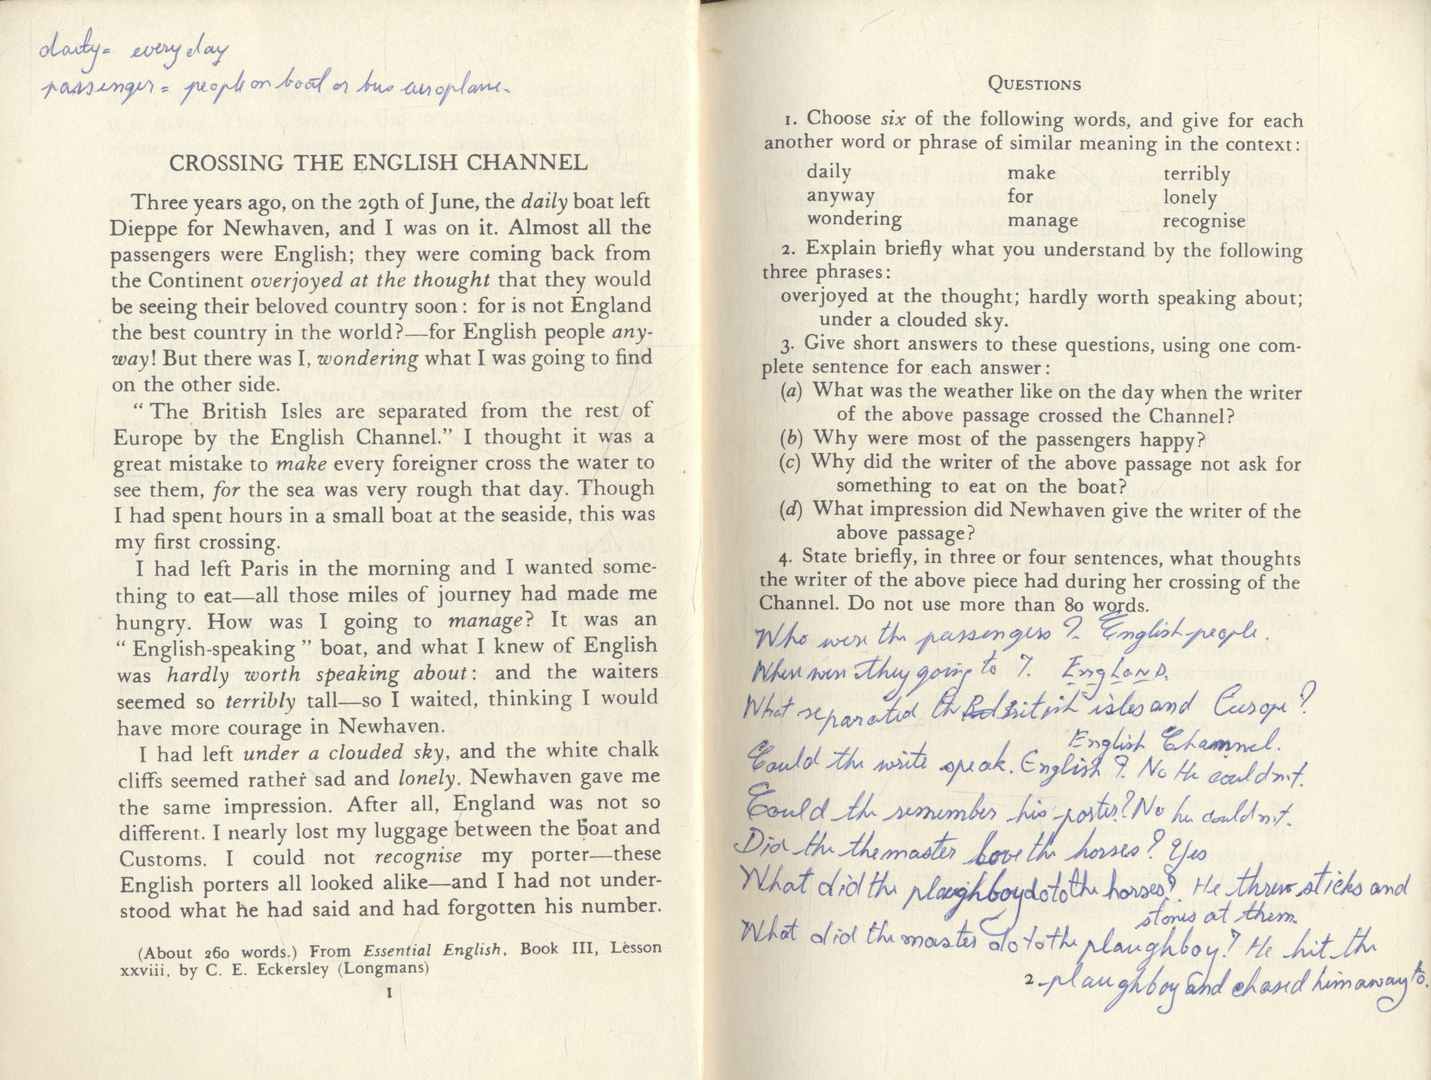 daily= every day
passenger = people on boat or bus aeroplane.
CROSSING THE ENGLISH CHANNEL
Three years ago, on the 29th of June, the daily boat left
Dieppe for Newhaven, and I was on it. Almost all the
passengers were English; they were coming back from
the Continent overjoyed at the thought that they would
be seeing their beloved country soon: for is not England
the best country in the world?—for English people any-
way! But there was I, wondering what I was going to find
on the other side.
“ The British Isles are separated from the rest of
Europe by the English Channel.” I thought it was a
great mistake to make every foreigner cross the water to
see them, for the sea was very rough that day. Though
I had spent hours in a small boat at the seaside, this was
my first crossing.
I had left Paris in the morning and I wanted some-
thing to eat—all those miles of journey had made me
hungry. How was I going to manage? It was an
“ English-speaking ” boat, and what I knew of English
was hardly worth speaking about: and the waiters
seemed so terribly tall—so I waited, thinking I would
have more courage in Newhaven.
I had left under a clouded sky, and the white chalk
cliffs seemed rather sad and lonely. Newhaven gave me
the same impression. After all, England was not so
different. I nearly lost my luggage between the boat and
Customs. I could not recognise my porter—these
English porters all looked alike—and I had not under-
stood what he had said and had forgotten his number.
(About 260 words.) From Essential English, Book III, Lesson
xxviii, by C. E. Eckersley (Longmans)
1
QUESTIONS
1. Choose six of the following words, and give for each
another word or phrase of similar meaning in the context:
daily make terribly
anyway for lonely
wondering manage recognise
2. Explain briefly what you understand by the following
three phrases:
overjoyed at the thought; hardly worth speaking about;
under a clouded sky.
3. Give short answers to these questions, using one com-
plete sentence for each answer:
(a) What was the weather like on the day when the writer
of the above passage crossed the Channel?
(b) Why were most of the passengers happy?
(c) Why did the writer of the above passage not ask for
something to eat on the boat?
(d) What impression did Newhaven give the writer of the
above passage?
4. State briefly, in three or four sentences, what thoughts
the writer of the above piece had during her crossing of the
Channel. Do not use more than 80 words.
Who were the passengers? English people.
When were they going to ? England.
What separated the British isles and Europe?
English Channel.
Could the write speak. English ? No He couldn't.
Could the remember his porter? No he couldn't.
Did the the master love the horses? Yes
What did the ploughboy do to the horses? He threw sticks and
stones at them
What did the master do to the ploughboy? He hit the
2 - ploughboy and chased him away to.